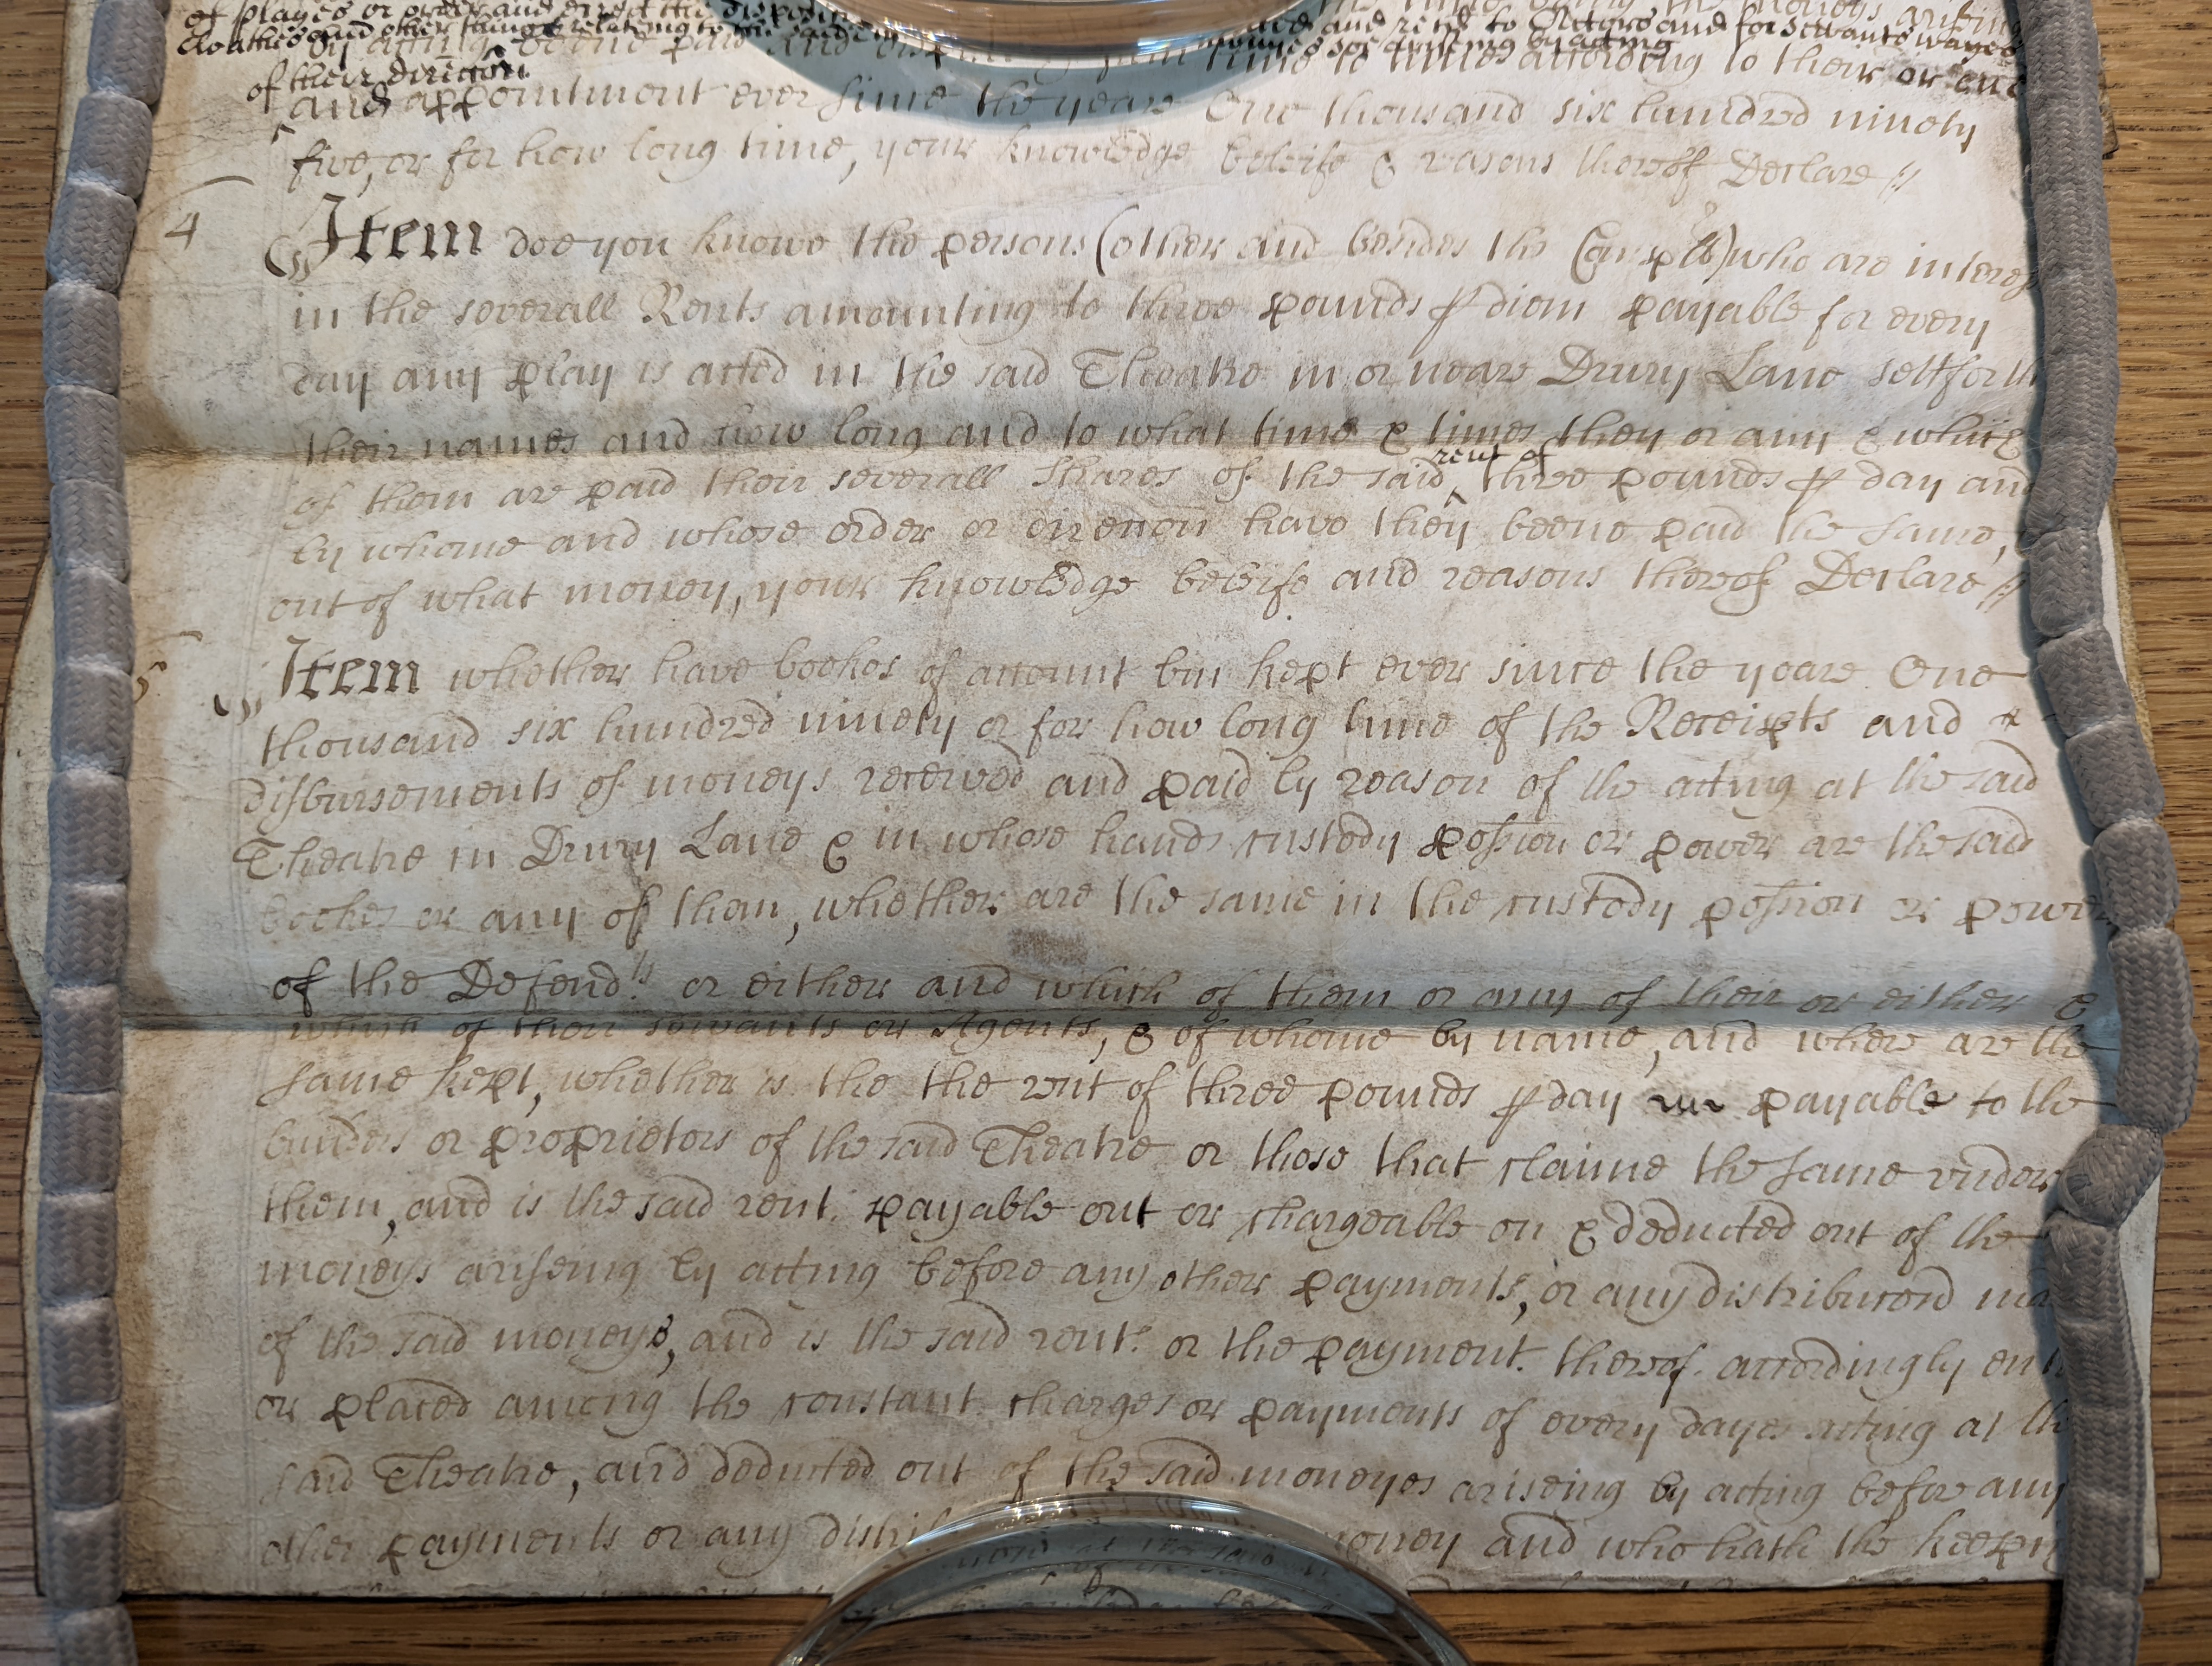 of playes or order and direct the disposing
cloathes and other things relateing to the said and rent to Actors and for servants wages
by acting beene paid and moneys soe ariseing by acting
of their direccon time to time according to their or any
and appointment ever since the yeare One thousand six hundred ninety
five, or for how long time, your knowledge beleife & reasons thereof Declare //
4
Item doe you knowe the persons (other and besides the Complts) who are interes
in the severall Rents amounting to three pounds p diem payable for every
day any play is acted in the said Theatre in or neare Drury Lane sett forth
their names and how long and to what time & times they or any & which
of them are paid their severall shares of the said rent of three pounds p day and
by whome and whose order or direccon have they beene paid the same,
out of what money, your knowledge beleife and reasons thereof Declare //
5
Item whether have bookes of account bin kept ever since the yeare One
thousand six hundred ninety or for how long time of the Receipts and
disbursements of moneys received and paid by reason of the acting at the said
Theatre in Drury Lane & in whose hands custody possion or power are the said
bookes or any of them, whether are the same in the custody possion or power
of the Defendts or either and which of them or any of their or either &
which of their servants or Agents, & of whome by name, and where are the
same kept, whether is the the rent of three pounds p day payable to the
buiders or proprietors of the said Theatre or those that claime the same under
them, and is the said rent payable out or chargeable on & deducted out of the
moneys ariseing by acting before any other payments, or any distribucons ma
of the said moneys, and is the said rent or the payment thereof accordingly ent
or placed among the constant charges or payments of every dayes acting at th
said Theatre, and deducted out of the said moneyes ariseing by acting before any
other payments or any distri money and who hath the keepin